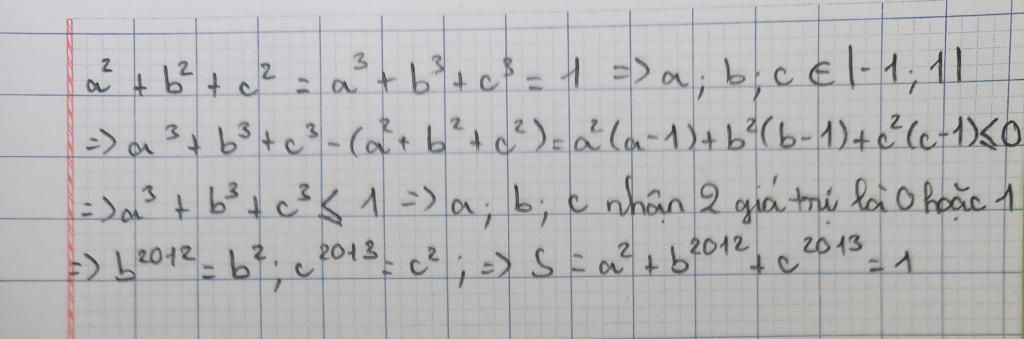 a² + b² + c² = a³ + b³ + c³ = 1 => a; b; c ∈ |-1; 1|
=> a³ + b³ + c³ - (a² + b² + c²) = a²(a-1) + b²(b-1) + c²(c-1) ≤ 0
=> a³ + b³ + c³ ≤ 1 => a; b; c nhận 2 giá trị là 0 hoặc 1
=> b²⁰¹² = b²; c²⁰¹³ = c²; => S = a² + b²⁰¹² + c²⁰¹³ = 1